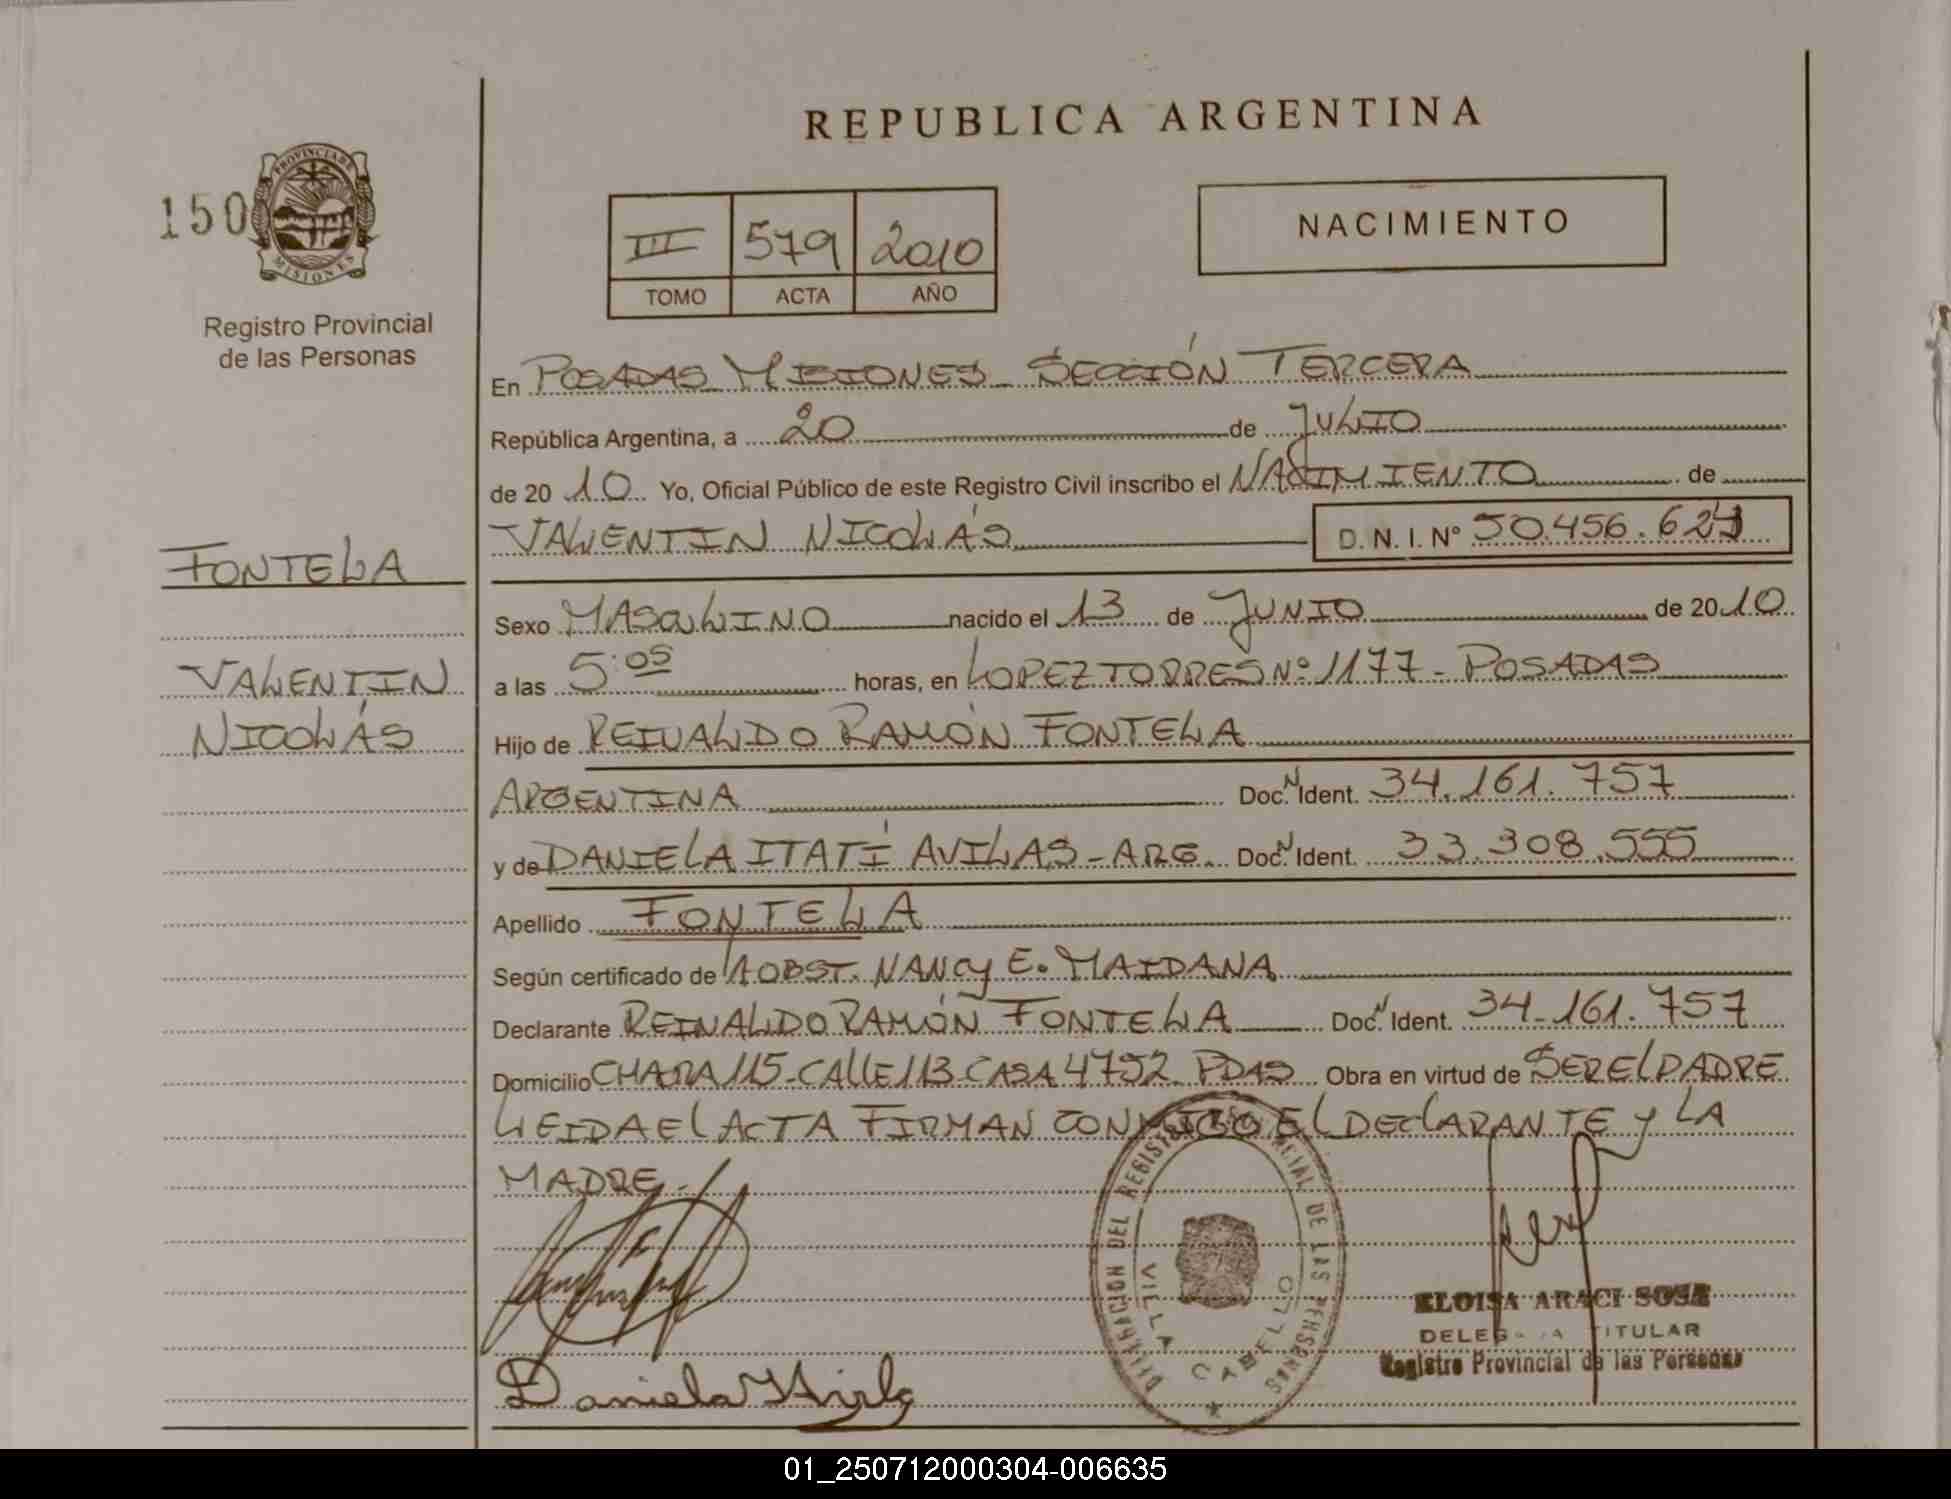 REPUBLICA ARGENTINA
150
PROVINCIA DE MISIONES
Registro Provincial
de las Personas
III 579 2010
TOMO ACTA AÑO
NACIMIENTO
En POSADAS MISIONES SECCIÓN TERCERA
República Argentina, a 20 de JULIO
de 20 10 Yo, Oficial Público de este Registro Civil inscribo el NACIMIENTO de
VALENTIN NICOLÁS D. N. I. Nº 50.456.621
FONTELA
VALENTIN
NICOLÁS
Sexo MASCULINO nacido el 13 de JUNIO de 20 10
a las 5:05 horas, en LOPEZ TORRES Nº 1177 - POSADAS
Hijo de REINALDO RAMÓN FONTELA
ARGENTINA Doc. N Ident. 34.161.757
y de DANIELA ITATÍ AVILAS - ARG. Doc. N Ident. 33.308.555
Apellido FONTELA
Según certificado de OBST. NANCY E. MAIDANA
Declarante REINALDO RAMÓN FONTELA Doc. N Ident. 34.161.757
Domicilio CHACRA 115 - CALLE 113 - CASA 4792 PDAS Obra en virtud de SER EL PADRE
LEIDA EL ACTA FIRMAN CONMIGO EL DECLARANTE y LA
MADRE.
DELEGACION DEL REGISTRO PROVINCIAL DE LAS PERSONAS
VILLA CABELLO
ELOISA ARACI SOSA
DELEGADA TITULAR
Registro Provincial de las Personas
Daniela
01_250712000304-006635